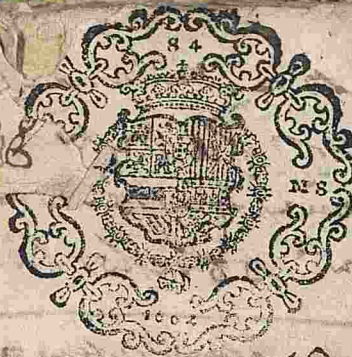 84
MS
1602